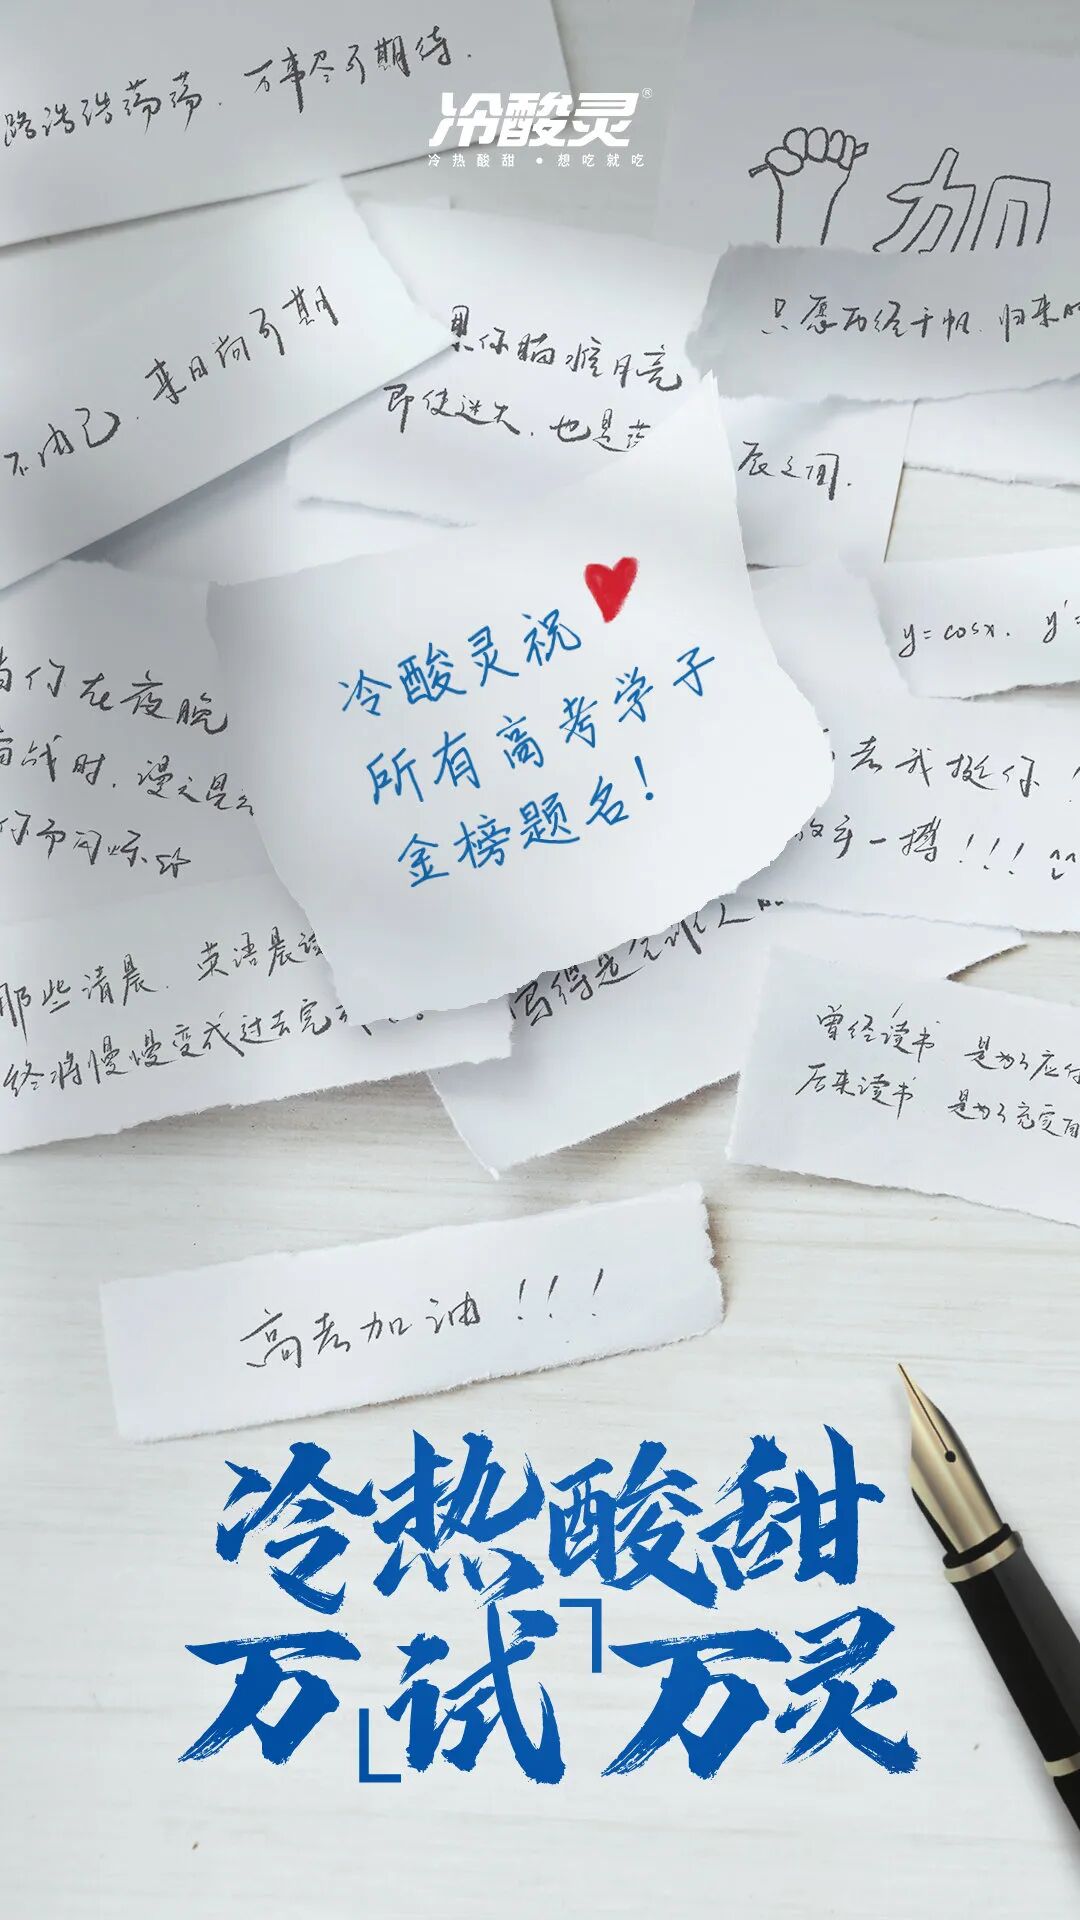 路浩浩荡荡，万事尽可期待.
冷酸灵®
冷热酸甜·想吃就吃
加
不由己，来日尚可期
果你瞄准月亮
即使迷失，也是落
辰之间.
只愿历经千帆，归来时
冷酸灵祝
所有高考学子
金榜题名！
y=cosx. y'=
当你在夜晚
奋战时，漫天星
你而闪烁
考我挺你！
一搏！！！
那些清晨，英语晨读
终将慢慢变成过去完
写得是
曾经读书 是为了应付
后来读书 是为了充实自
高考加油！！！
冷热酸甜
万「试」万灵